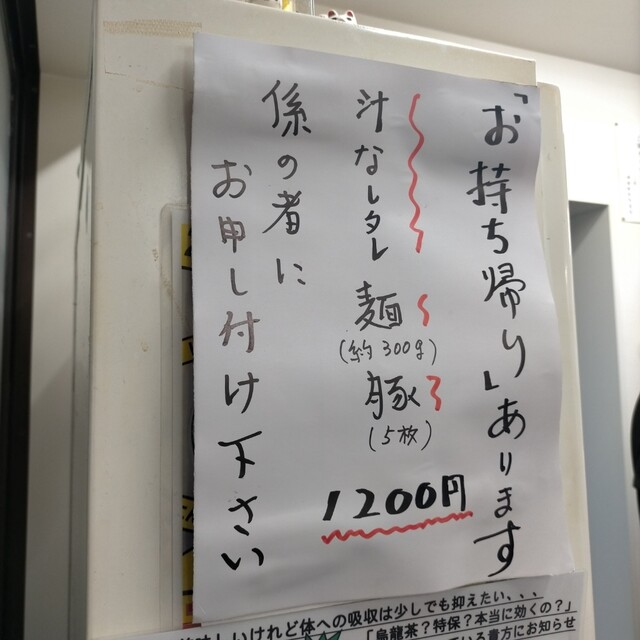 「お持ち帰り」あります
汁なしタレ
麺
(約300g)
豚
(5枚)
1200円
係の者に
お申し付け下さい
美味しいけれど体への吸収は少しでも抑えたい、、、
「烏龍茶？特保？本当に効くの？」